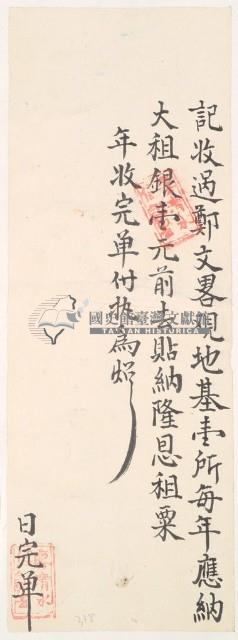 記收過鄭文畧觀地基壹所每年應納
大租銀壹元前去貼納隆恩租粟
年收完单付執為炤
日完单
國史館臺灣文獻館
TAIWAN HISTORICA
318